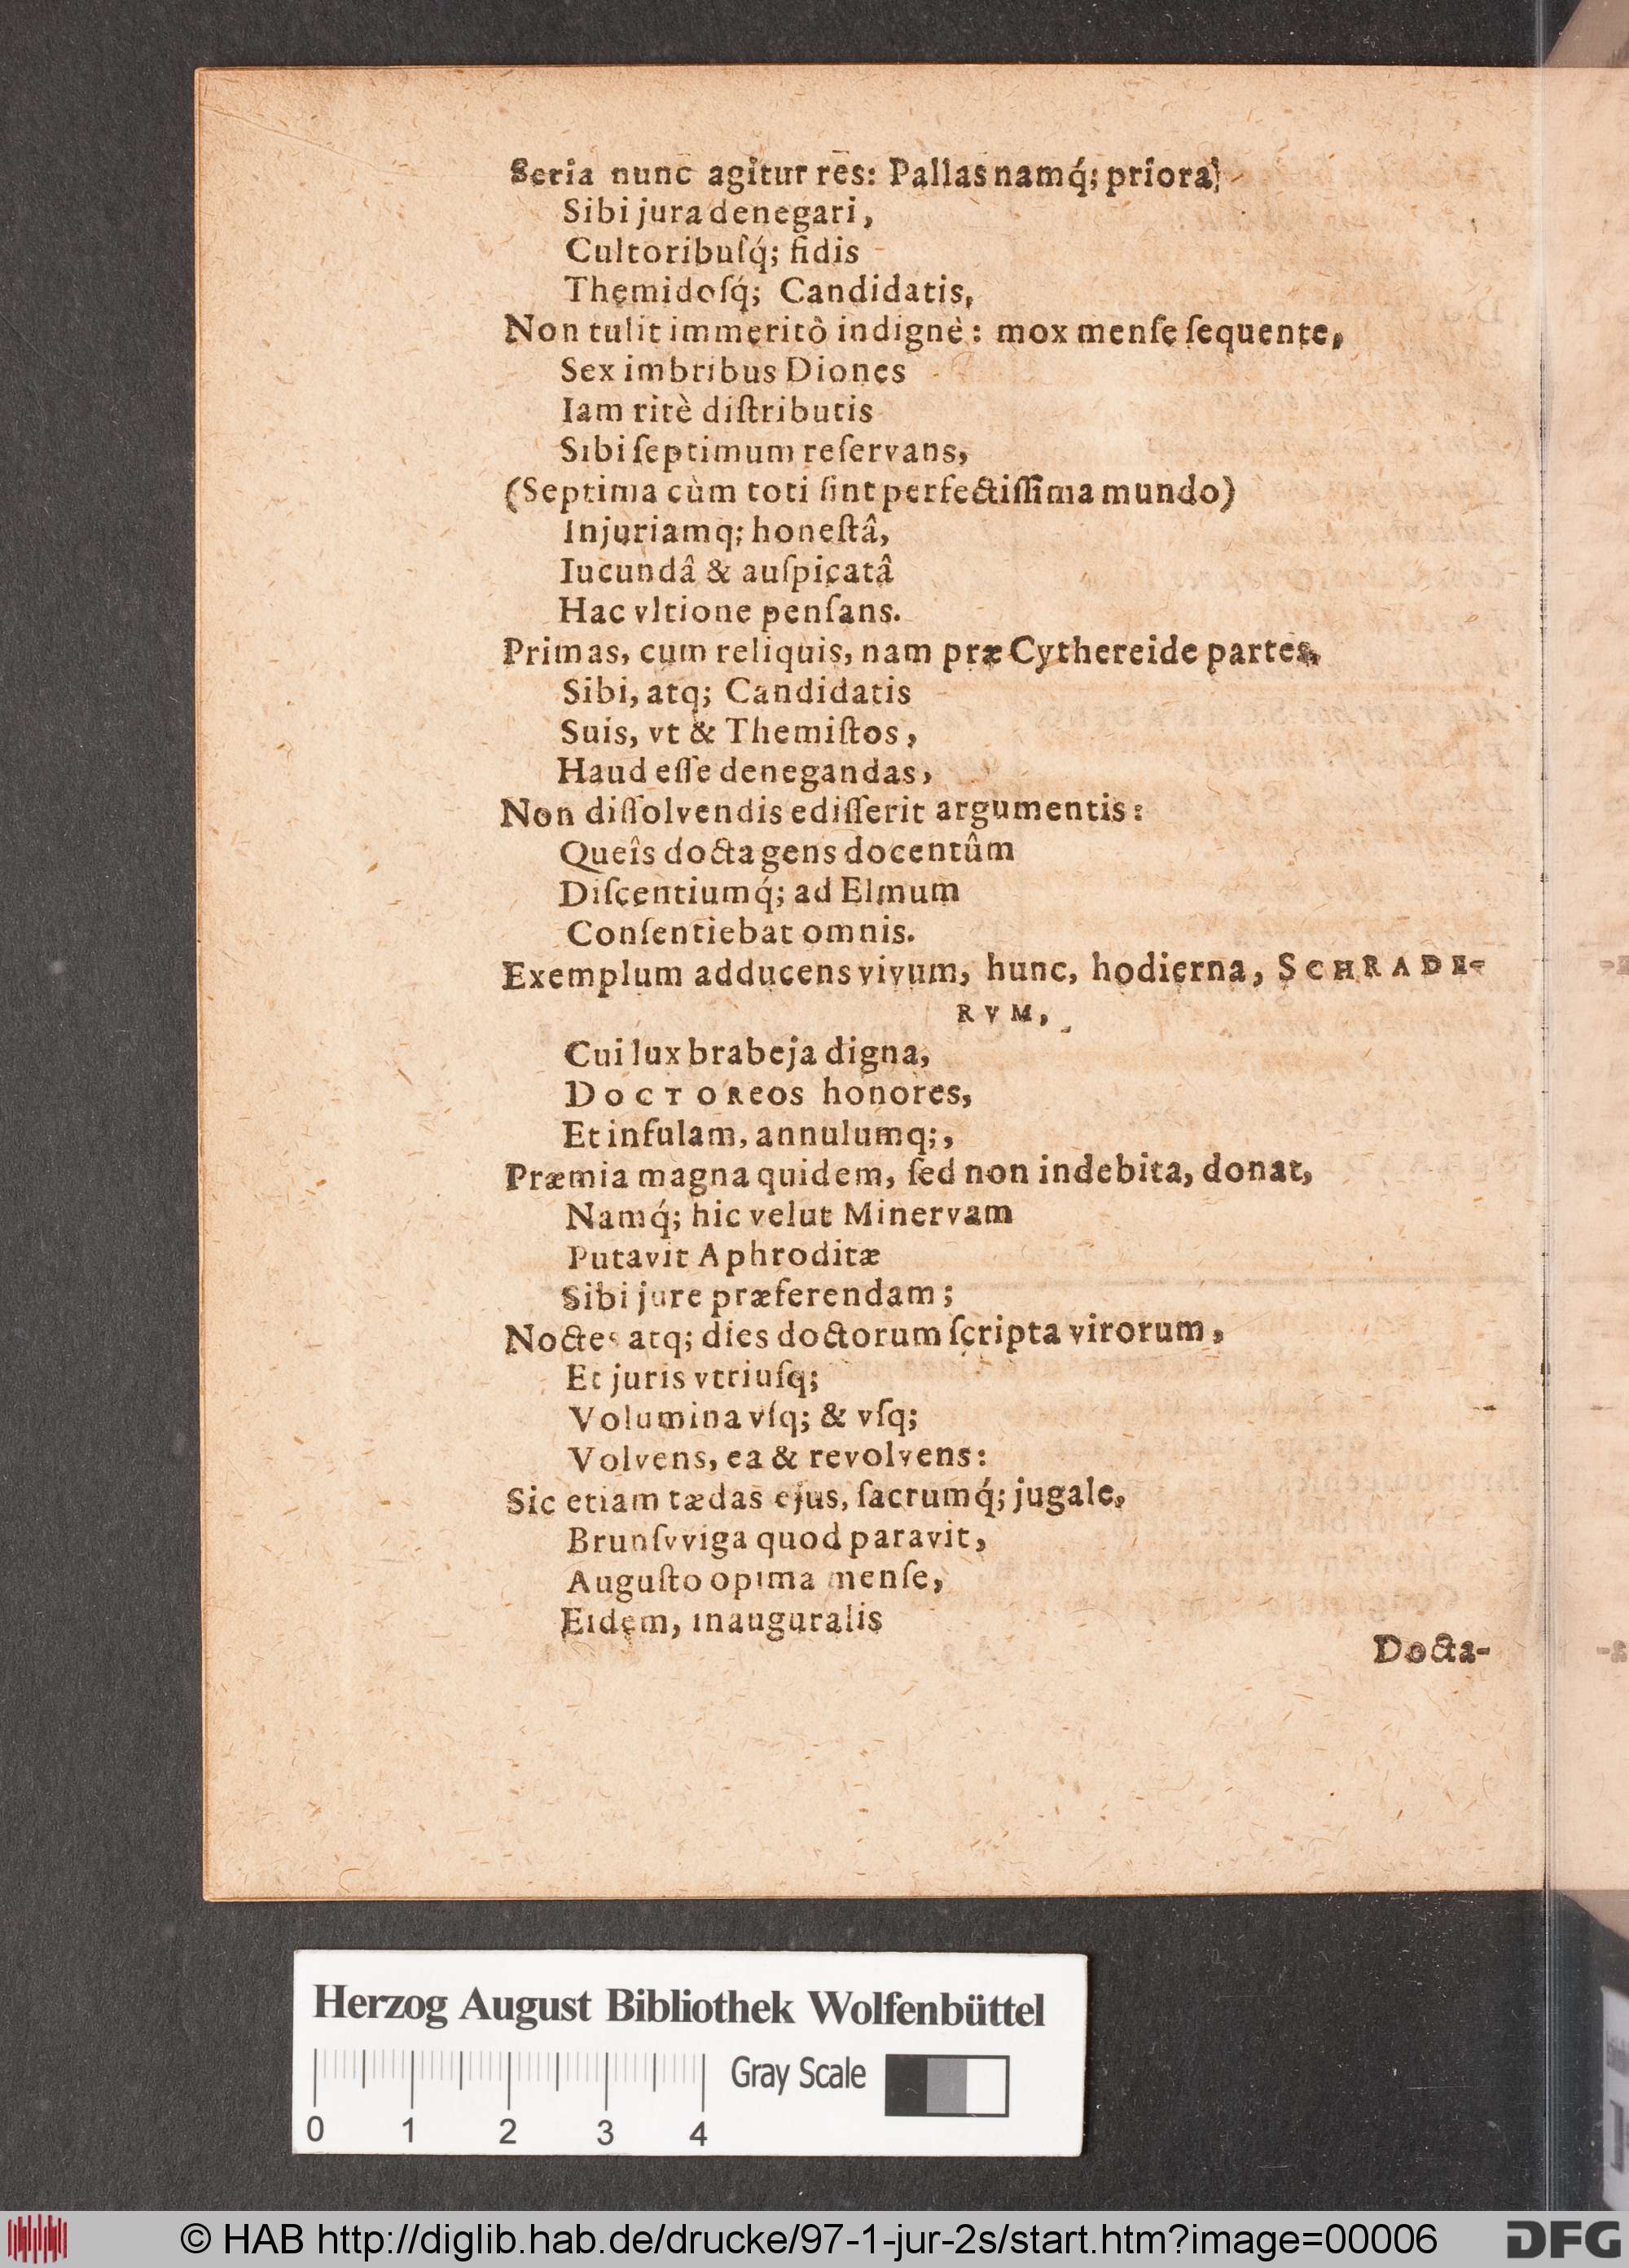 Seria nunc agitur res: Pallas namq́; priora
Sibi jura denegari,
Cultoribuſq́; fidis
Themidoſq́; Candidatis,
Non tulit immeritò indignè: mox menſe ſequente,
Sex imbribus Diones
Iam ritè diſtributis
Sibi ſeptimum reſervans,
(Septima cùm toti ſint perfectiſſima mundo)
Injuriamq; honeſtâ,
Iucundâ & auſpicatâ
Hac vltione penſans.
Primas, cum reliquis, nam præ Cythereide partes,
Sibi, atq; Candidatis
Suis, vt & Themiſtos,
Haud eſſe denegandas,
Non diſſolvendis ediſſerit argumentis:
Queîs docta gens docentûm
Diſcentiumq́; ad Elmum
Conſentiebat omnis.
Exemplum adducens vivum, hunc, hodierna, SCHRADE-
RVM,
Cui lux brabeja digna,
DOCTOReos honores,
Et infulam, annulumq;,
Præmia magna quidem, ſed non indebita, donat,
Namq́; hic velut Minervam
Putavit Aphroditæ
Sibi jure præferendam;
Noctes atq; dies doctorum ſcripta virorum,
Et juris vtriuſq;
Volumina vſq; & vſq;
Volvens, ea & revolvens:
Sic etiam tædas ejus, ſacrumq́; jugale,
Brunſvviga quod paravit,
Auguſto opima menſe,
Eidem, inauguralis
Docta-
Herzog August Bibliothek Wolfenbüttel
Gray Scale
0 1 2 3 4
© HAB http://diglib.hab.de/drucke/97-1-jur-2s/start.htm?image=00006
DFG